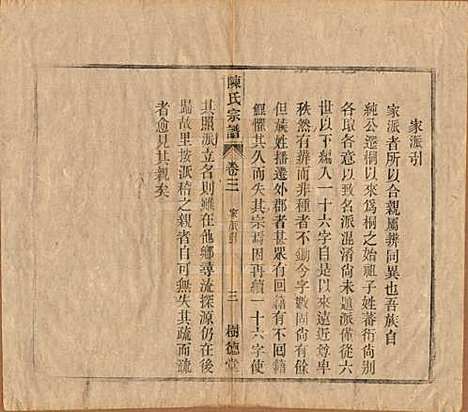 家派引
家派者所以合親屬辨同異也吾族自
純公遷桐以來爲桐之始祖子姓蕃衍尙別
各取各意以致名派混淆尙未題派僅從六
世以不 人一十六字自是以來遠近尊卑
秩然有彝而非種者不鋤今字數固尙有餘
但蔟姓播遷外郡者甚眾有回籍有不回籍
懼其久而失其宗焉因再續一十六字使
陳氏宗譜
卷三
家派引
三
樹德堂
其照派立名則雖在他鄉尋流探源仍在後
歸故里按派稽之親者自可無失其疏而疏
者愈見其親矣